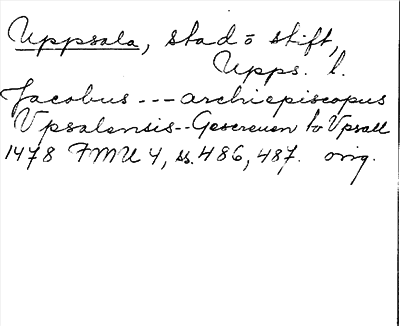 Uppsala, stad o stift,
Upps. l.
Jacobus --- archiepiscopus
Vpsalensis -- Gescreuen to Vpsall
1478 FMU 4, ss. 486, 487. orig.